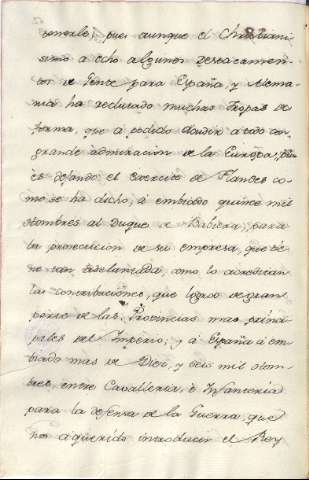 ponerlo, pues aunque el Christiani
simo á echo algunos destacamen
tos de Gente para España, y Alema
nia ha reclutado muchas Tropas de
forma, que á podido acudir á todo con
grande admiracion de la Europa, pu
es dejando el Exercito de Flandes co
mo se ha dicho, á embiado quince mil
Hombres al Duque de Babiera, para
la prosecucion de su empresa, que tie
ne tan adelantada, como lo acreditan
las contribuciones, que logró de gran
parte de las Provincias mas princi
pales del Imperio; y á España á em
biado mas de Diez, y seis mil Hom
bres, entre Cavalleria, é Infanteria
para la defensa de la Guerra, que
nos á querido introducir el Rey